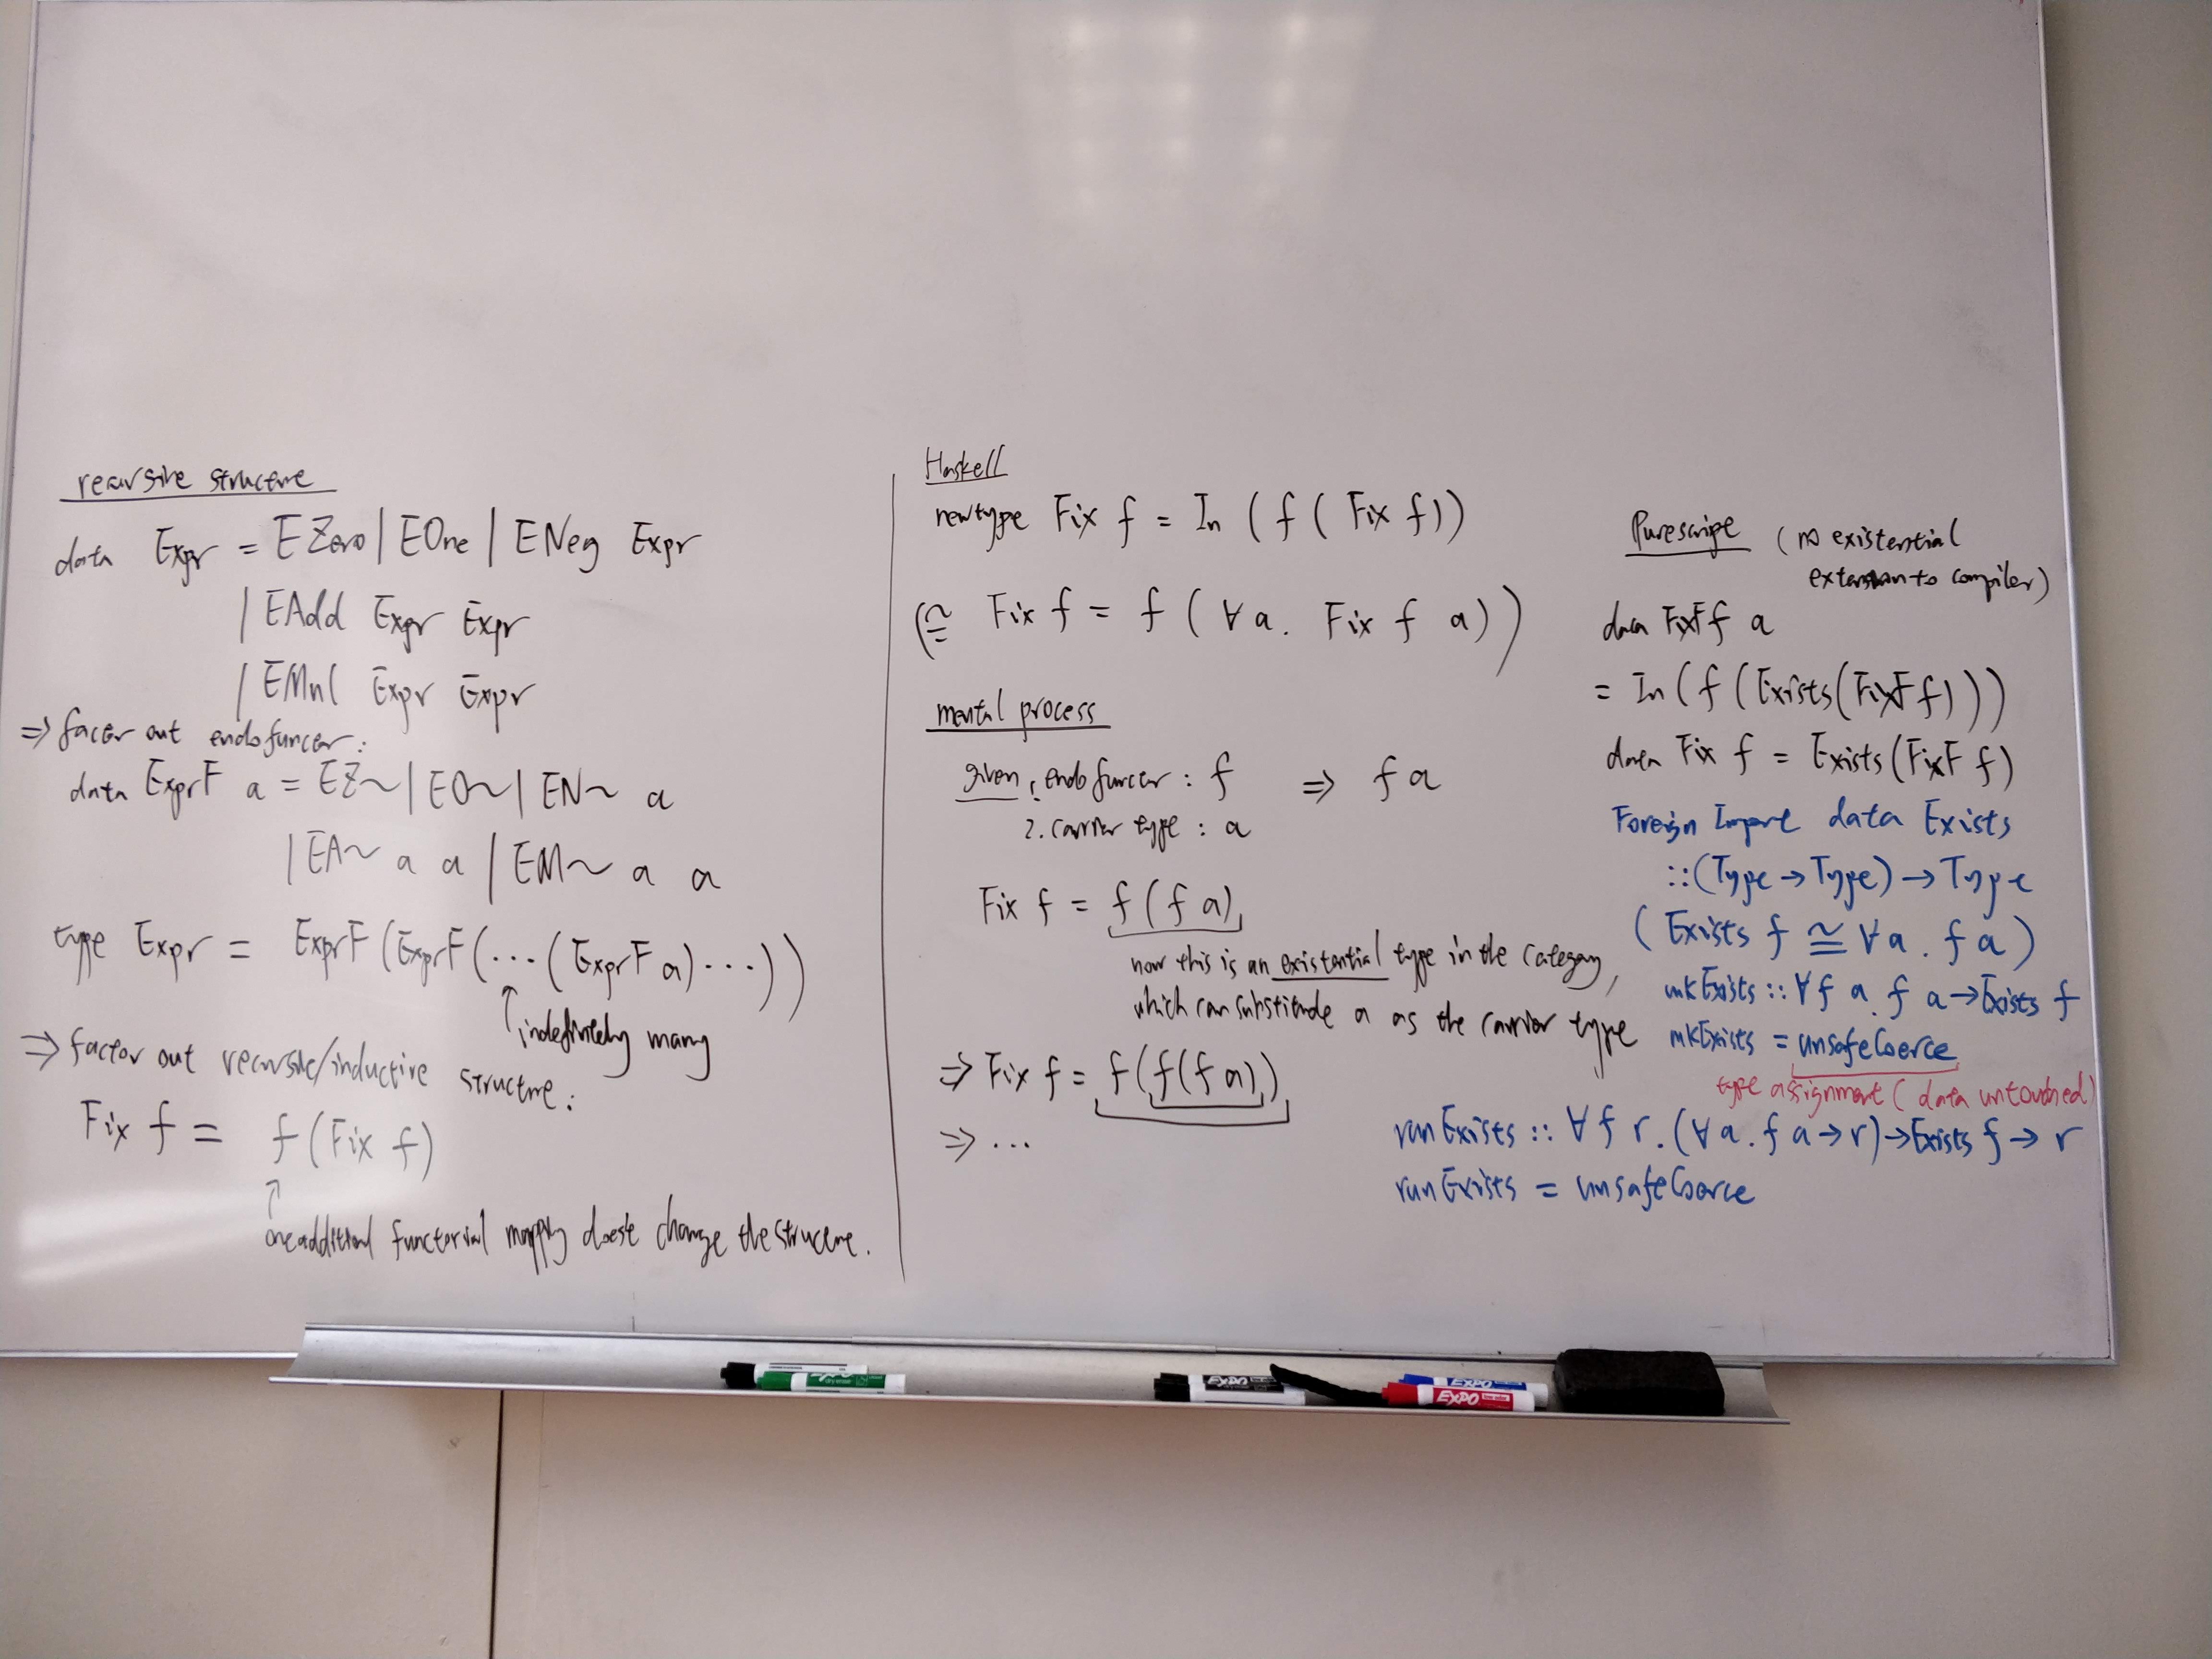 recursive structure
data Expr = EZero | EOne | ENeg Expr
| EAdd Expr Expr
| EMul Expr Expr
⇒ facor out endofuncor:
data ExprF a = EZ~ | EO~ | EN~ a
| EA~ a a | EM~ a a
type Expr = ExprF (ExprF (··· (ExprF a) ···))
↑ indefinitely many
⇒ factor out recursive/inductive structure:
Fix f = f (Fix f)
↑
one additional functorial mapping doesn't change the structure.
Haskell
newtype Fix f = In (f (Fix f))
(≅ Fix f = f (∀a. Fix f a))
mental process
given: 1. endofuncor : f ⇒ f a
2. carrier type : a
Fix f = f (f a)
now this is an existential type in the category,
which can substitude a as the carrier type
⇒ Fix f = f (f (f a))
⇒ ...
Purescript (no existential
extension to compiler)
data FixF f a
= In (f (Exists (FixF f)))
data Fix f = Exists (FixF f)
Foreign Import data Exists
:: (Type → Type) → Type
(Exists f ≅ ∀a. f a)
mkExists :: ∀ f a. f a → Exists f
mkExists = unsafeCoerce
type assignment (data untouched)
runExists :: ∀ f r. (∀a. f a → r) → Exists f → r
runExists = unsafeCoerce
EXPO
EXPO
EXPO